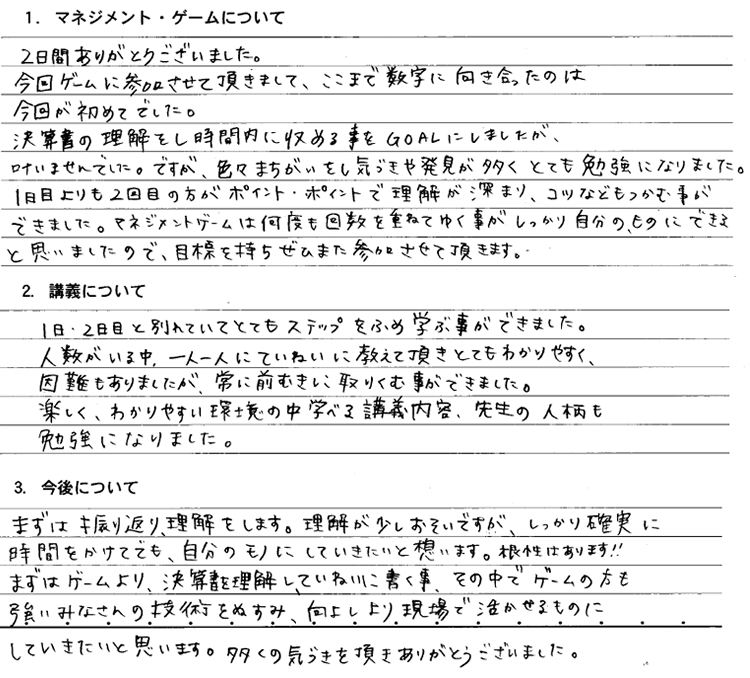 1. マネジメント・ゲームについて
2日間ありがとうございました。
今回ゲームに参加させて頂きまして、ここまで数字に向き合ったのは
今回が初めてでした。
決算書の理解をし時間内に収める事をGOALにしましたが、
叶いませんでした。ですが、色々まちがいをし気づきや発見が多くとても勉強になりました。
1日目よりも2回目の方がポイント・ポイントで理解が深まり、コツなどもつかむ事が
できました。マネジメントゲームは何度も回数を重ねてゆく事がしっかり自分のものにできる
と思いましたので、目標を持ちぜひまた参加させて頂きます。
2. 講義について
1日・2日目と別れていてとてもステップをふめ学ぶ事ができました。
人数がいる中、一人一人にていねいに教えて頂きとてもわかりやすく、
困難もありましたが、常に前むきに取りくむ事ができました。
楽しく、わかりやすい環境の中学べる講義内容、先生の人柄も
勉強になりました。
3. 今後について
まずは振り返り、理解をします。理解が少しおそいですが、しっかり確実に
時間をかけてでも、自分のモノにしていきたいと想います。根性はあります!!
まずはゲームより、決算書を理解し、ていねいに書く事、その中でゲームの方も
強いみなさんの技術をぬすみ、向上しより現場で活かせるものに
していきたいと思います。多くの気づきを頂きありがとうございました。